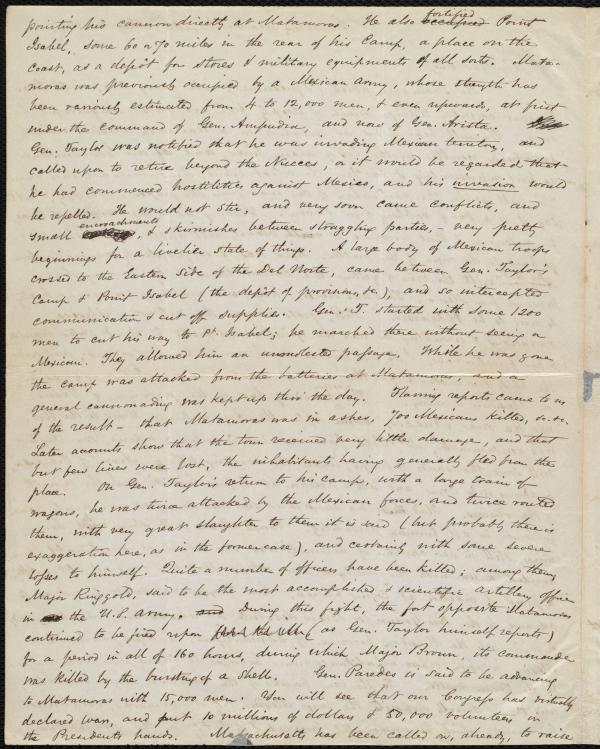 pointing his cannon directly at Matamoras. He also occupied fortified Point
Isabel, some 60 or 70 miles in the rear of his Camp, a place on the
coast, as a depôt for stores & military equipments of all sorts. Mata-
moras was previously occupied by a Mexican army, whose strength has
been variously estimated from 4 to 12,000 men, & even upwards, at first
under the command of Gen. Ampudia, and now of Gen. Arista.
Gen. Taylor was notified that he was invading Mexican territory, and
called upon to retire beyond the Nueces, or it would be regarded that
he had commenced hostilities against Mexico, and his invasion would
be repelled. He would not stir, and very soon came conflicts, and
small encroachments, & skirmishes between straggling parties, - very pretty
beginnings for a livelier state of things. A large body of Mexican troops
crossed to the Eastern side of the Del Norte, came between Gen. Taylor's
Camp & Point Isabel (the depôt of provisions, &c.), and so intercepted
communication & cut off supplies. Gen. T. started with some 1200
men to cut his way to Pt. Isabel; he marched there without seeing a
Mexican. They allowed him an unmolested passage. While he was gone
the camp was attacked from the batteries at Matamoras, and a
general cannonading was kept up thro' the day. Flaming reports came to us
of the result - that Matamoras was in ashes, 700 Mexicans killed, &c. &c.
Later accounts show that the town received very little damage, and that
but few lives were lost, the inhabitants having generally fled from the
place. On Gen. Taylor's return to his Camp, with a large train of
wagons, he was twice attacked by the Mexican forces, and twice routed
them, with very great slaughter to them it is said (but probably there is
exaggeration here, as in the former case), and certainly with some severe
losses to himself. Quite a number of officers have been killed; among them,
Major Ringgold, said to be the most accomplished & scientific artillery officer
in the U.S. Army. and During this fight, the fort opposite Matamoras
continued to be fired upon (as Gen. Taylor himself reports)
for a period in all of 160 hours, during which Major Brown, its commander
was killed by the bursting of a shell. Gen. Paredes is said to be advancing
to Matamoras with 15,000 men. You will see that our Congress has virtually
declared war, and put 10 millions of dollars & 50,000 volunteers in
the Presidents hands. Massachusetts has been called on, already, to raise